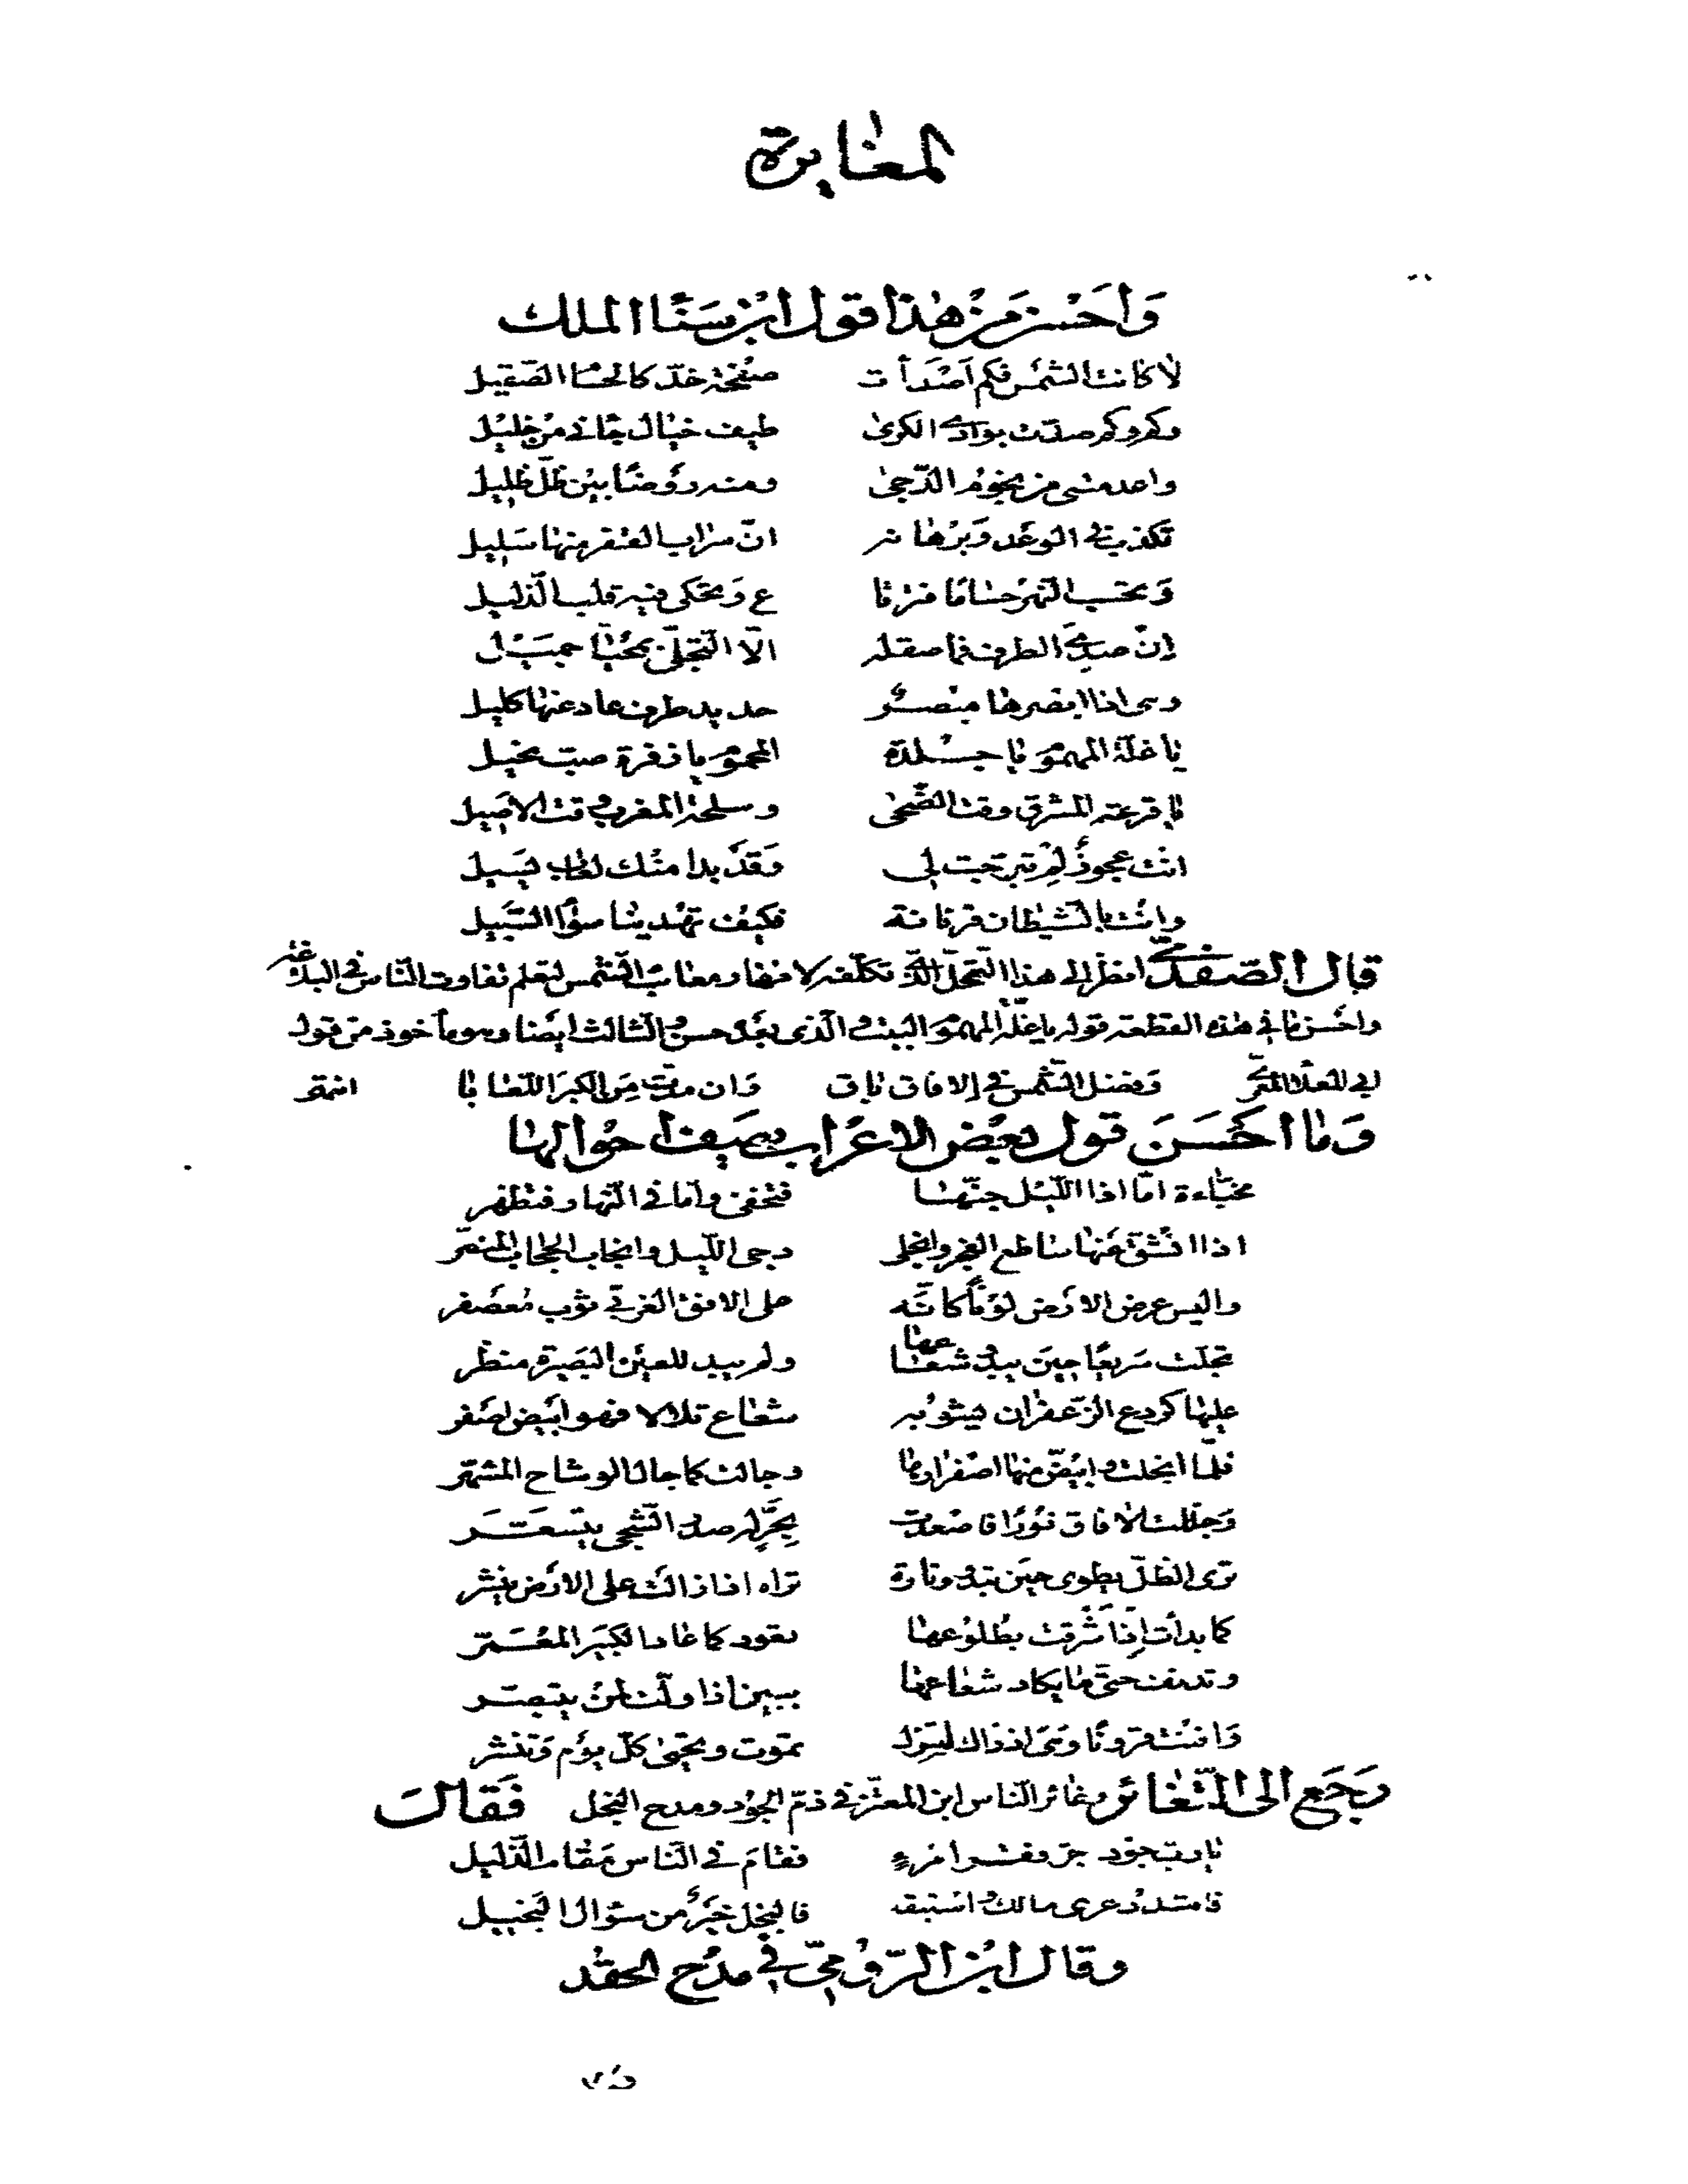 المغايرة
وَأحْسَن مَن هٰذا قول ابْن سَنَا الملك
لا كانت الشمْس فكم اَصْدَأت صفْحَة خدّ كالحسا الصّقيل
وكم وكم صدّت بوادي الكرىٰ طيف خيال جاني من خليل
واعدمتني من نجوم الدّجىٰ ومنه روْضًا بيْن ظلّ ظليل
تكذب في الوعْد وَبُرْهانه انّ سراب القفر منها سَليل
وَتحسب النهر حسامًا فترتا ع وَتحكى فيه قلب الذليل
إنْ صدئ الطرف فما صقله الّا التجلّي بمحيّا جميل
وهى اذا ابصرها مبْصر حديد طرف عاد عنها كليل
يا غلّة المهموم يا جلدة المحموم يا زفرة صبّ نحيل
يا قرحة المشرق وقت الضّحىٰ وسلحة المغرب وقت الاصيل
انت عجوز لِمْ تبرّجت لى وَقدْ بدا منْك لعاب يسَيل
وانْت بالشّيطان قرنانة فكيْف تهْدينا سوٰا السّبيل
قال الصّفدىّ انظر إلى هذا التمحّل الذى تكلّفه لا منها رمعايب الشّمس لتعلم تفاوت النّاس في البلاغة
واحْسن ما في هذه القطعة قوله يا غلّة المهموم البيت والّذى بعْد حسن والثالث ايضا وهو مأخوذ من قول
ابى العلا المعرّى وَفضل الشّمس في الافاق باق وَان مدّت مِن الكبر اللّعابا انتهى
وَمٰا اَحْسَنَ قول بعْض الاعْراب يصَف احْوالها
مخبّاءة امّا اذا اللّيْل جنّهٰا فتخفى وامّا في النّهار فتظهر
اذا انْشقّ عنها ساطع الفجر وانجلى دجى اللّيل وانجاب الحجاب المستّر
والبس عرض الارْض لوْنًا كانّه على الافق الغربىّ ثوْب مُعصْفر
تجلّت سَريعًا حِينَ يبدو شعاعها ولم يبد للعيْن البَصيرة منظر
عليْها كردع الزّعفران يشوبه شعاع تلالا فهو ابْيض اصْفر
فلمّا انجلت وابيْضّ منها اصْفرارها وجالت كما جال الوشاح المشهّر
وَجلّلت الآفاق نوْرًا فاصْعدت بِحَرٍّ له صدر الشّجى يتسعّر
ترى الظلّ يطوى حِين تبدو وتارة تراه اذا زالت على الارْض ينشر
كما بدأت إذا شْرقت بطلوعها تعود كما عاد الكبير المعمّر
وتدنف حتّى مٰا يكاد شعاعها يبين اذا ولّت لمنْ يتبصّر
وَافنْت قرونًا وَهى اذ ذاك لم تزل تموت وتحيىٰ كلّ يوْم وَتنشر
رَجَع الى التّغٰائر وغاير النّاس ابن المعتزّ في ذمّ الجوْد ومدح البخل فَقالَ
يا ربّ جوْد جرّ فقر امرءٍ فقامَ في النّاس مَقام الذّليل
فاشدد عرى مالك واسْتبقه فالبخل خيرٌ من سؤال البخيل
وقال ابْن الرّومىّ في مدْح الحقْد